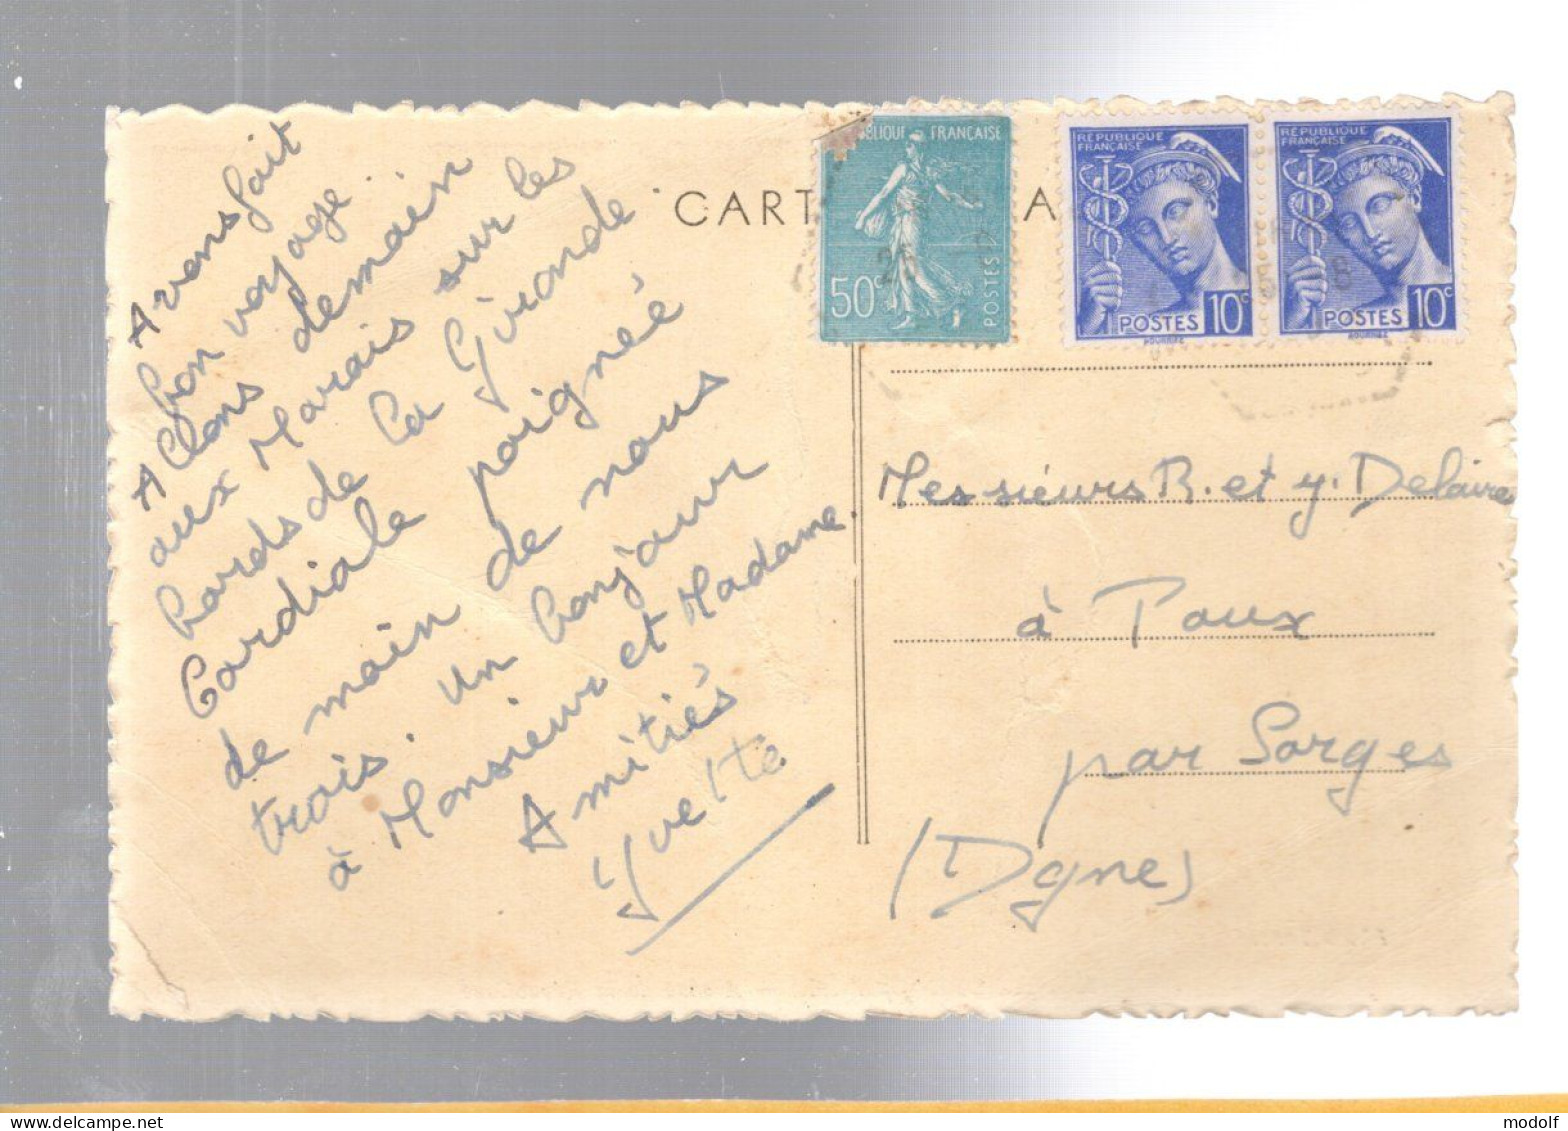 Avons fait
bon voyage.
Allons demain
aux Marais sur les
bords de la Gironde
Cordiale poignée
de main de nous
trois. Un bonjour
à Monsieur et Madame.
Amitiés
Yvette
CART A
RÉPUBLIQUE FRANÇAISE
50c POSTES
RÉPUBLIQUE
FRANÇAISE
POSTES 10c
RÉPUBLIQUE
FRANÇAISE
POSTES 10c
Messieurs R. et Y. Delaire
à Paux
par Sorges
(Dgne)
modolf